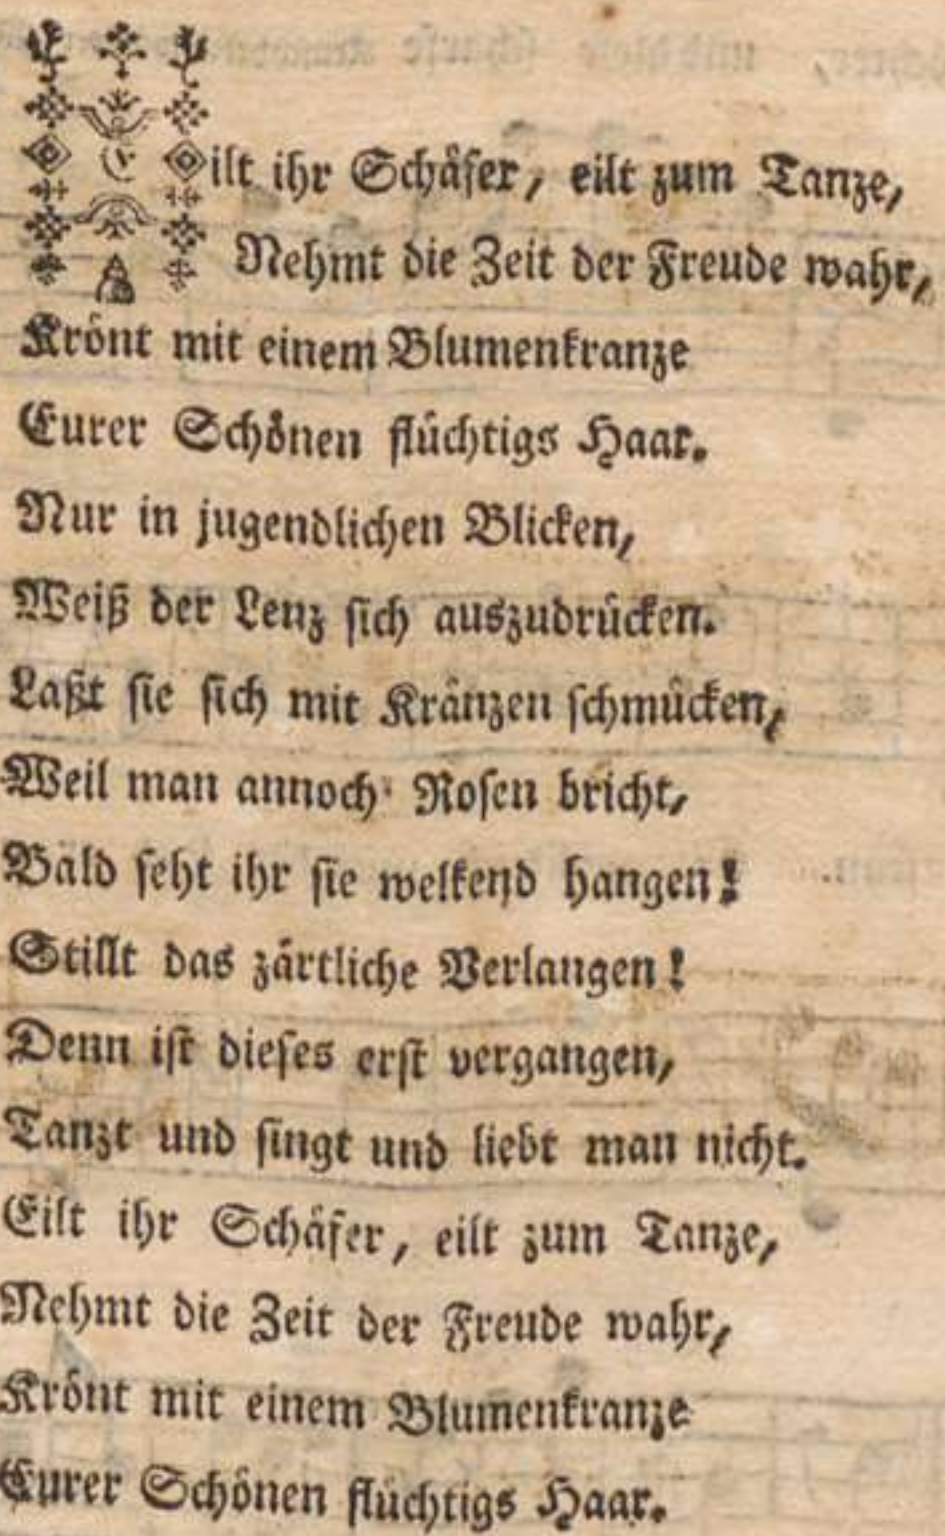 Eilt ihr Schäfer, eilt zum Tanze,
Nehmt die Zeit der Freude wahr,
Krönt mit einem Blumenkranze
Eurer Schönen flüchtigs Haar.
Nur in jugendlichen Blicken,
Weiß der Lenz sich auszudrücken.
Laßt sie sich mit Kränzen schmücken,
Weil man annoch Rosen bricht,
Bald seht ihr sie welkend hangen!
Stillt das zärtliche Verlangen!
Denn ist dieses erst vergangen,
Tanzt und singt und liebt man nicht.
Eilt ihr Schäfer, eilt zum Tanze,
Nehmt die Zeit der Freude wahr,
Krönt mit einem Blumenkranze
Eurer Schönen flüchtigs Haar.